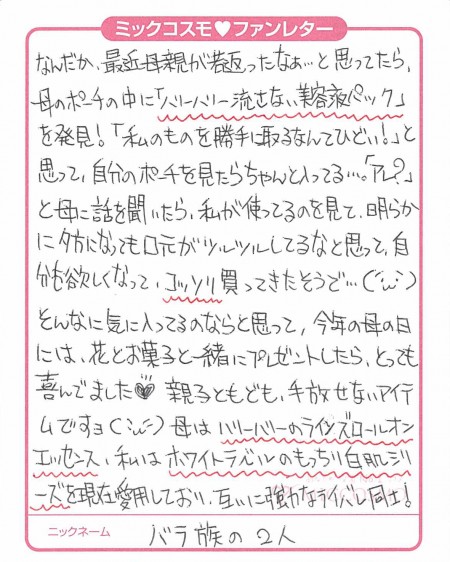 ミックコスモ♥ファンレター
なんだか、最近母親が若返ったなぁ…と思ってたら、
母のポーチの中に「バリーバリー流さない美容液パック」
を発見!「私のものを勝手に取るなんてひどい!」と
思って、自分のポーチを見たらちゃんと入ってる…。「アレ?」
と母に話を聞いたら、私が使ってるのを見て、明らか
に夕方になっても口元がツルツルしてるなと思って、自
分も欲しくなって、コッソリ買ってきたそうで…(´ω`)
そんなに気に入ってるのならと思って、今年の母の日
には、花とお菓子と一緒にプレゼントしたら、とっても
喜んでました♥ 親子ともども、手放せないアイテ
ムですヨ(´ω`) 母はバリーバーのラインズロールオン
エッセンス、私はホワイトラベルのもっちり白肌シリ
ーズを現在愛用しており、互いに強力なライバル同士!
ニックネーム バラ族の2人